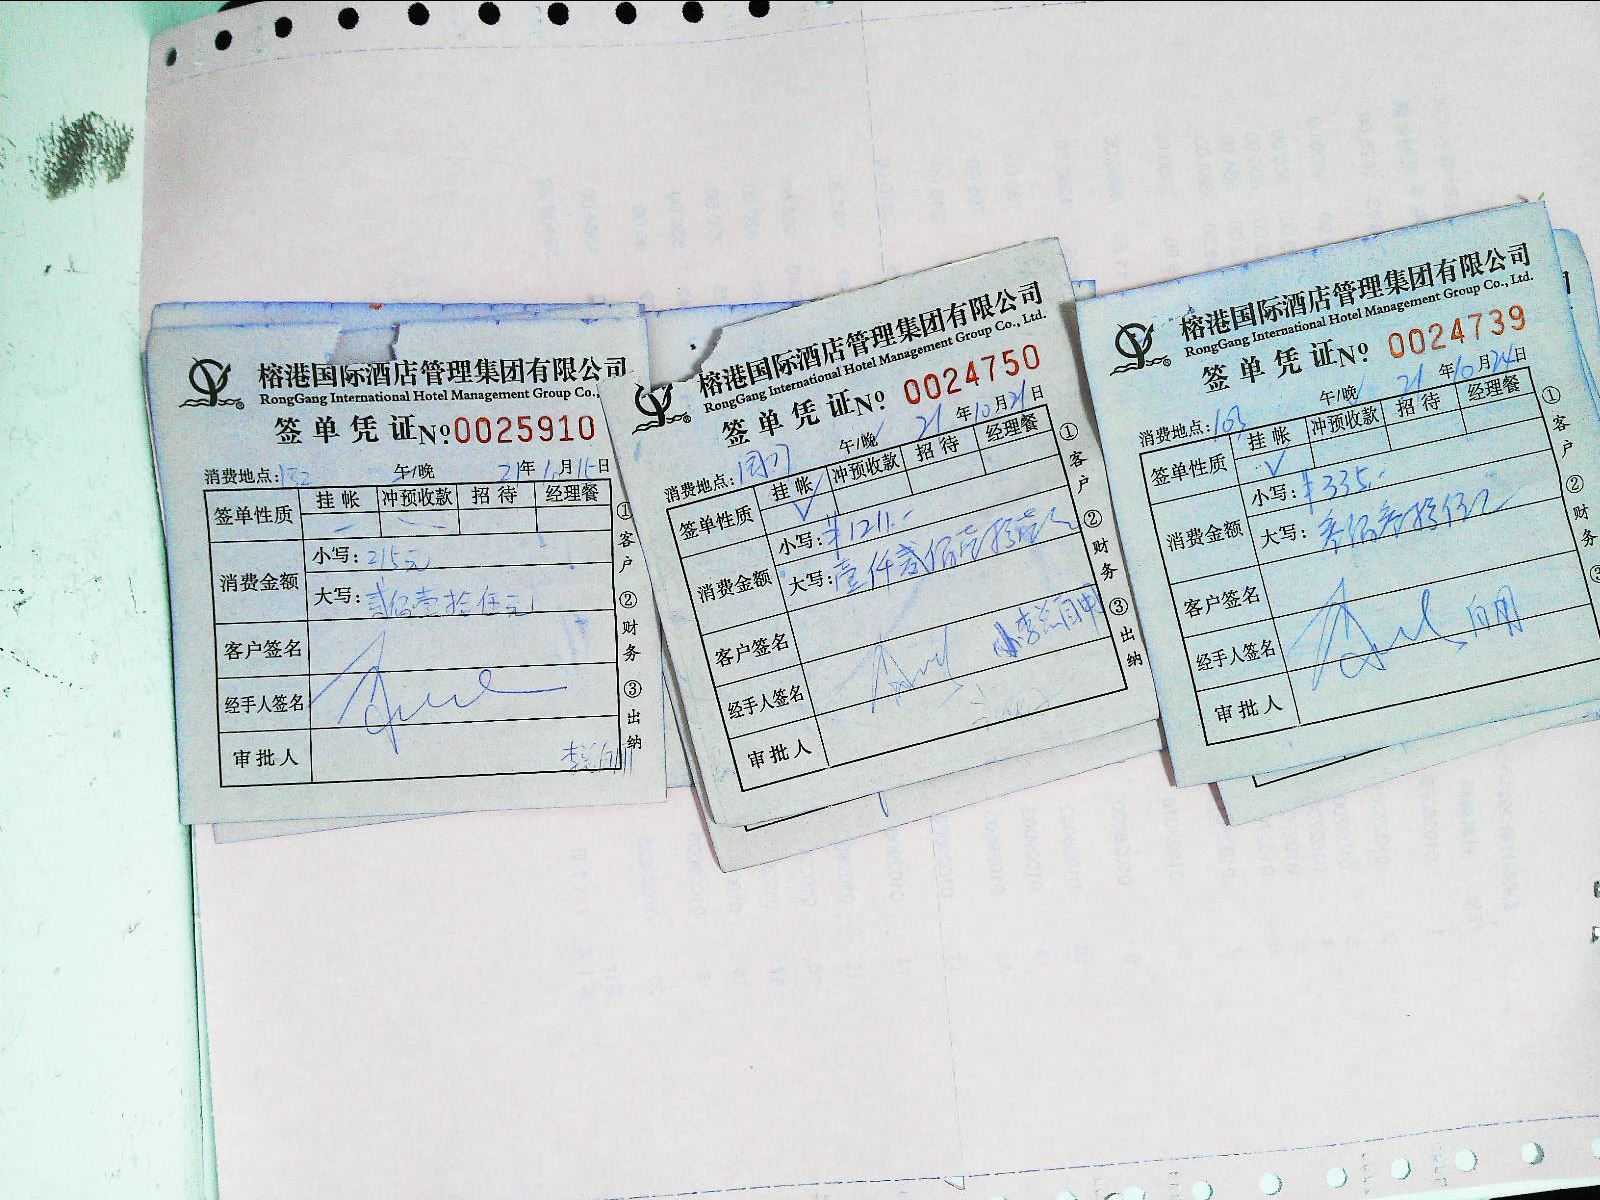 榕港国际酒店管理集团有限公司
RongGang International Hotel Management Group Co.,
签单凭证 №0025910
消费地点: 午/晚 21年11月15日
签单性质 挂帐 冲预收款 招待 经理餐
消费金额
小写:215元
大写:贰佰壹拾伍元
客户签名
经手人签名
审批人
①客户 ②财务 ③出纳
榕港国际酒店管理集团有限公司
RongGang International Hotel Management Group Co., Ltd.
签单凭证 №0024750
消费地点: 午/晚 21年10月21日
签单性质 挂帐 冲预收款 招待 经理餐
消费金额
小写:¥1211.-
大写:壹仟贰佰壹拾壹元
客户签名
经手人签名
审批人
①客户 ②财务 ③出纳
榕港国际酒店管理集团有限公司
RongGang International Hotel Management Group Co., Ltd.
签单凭证 №0024739
消费地点: 午/晚 21年10月24日
签单性质 挂帐 冲预收款 招待 经理餐
消费金额
小写:¥335.-
大写:叁佰叁拾伍元
客户签名
经手人签名
审批人
①客户 ②财务 ③